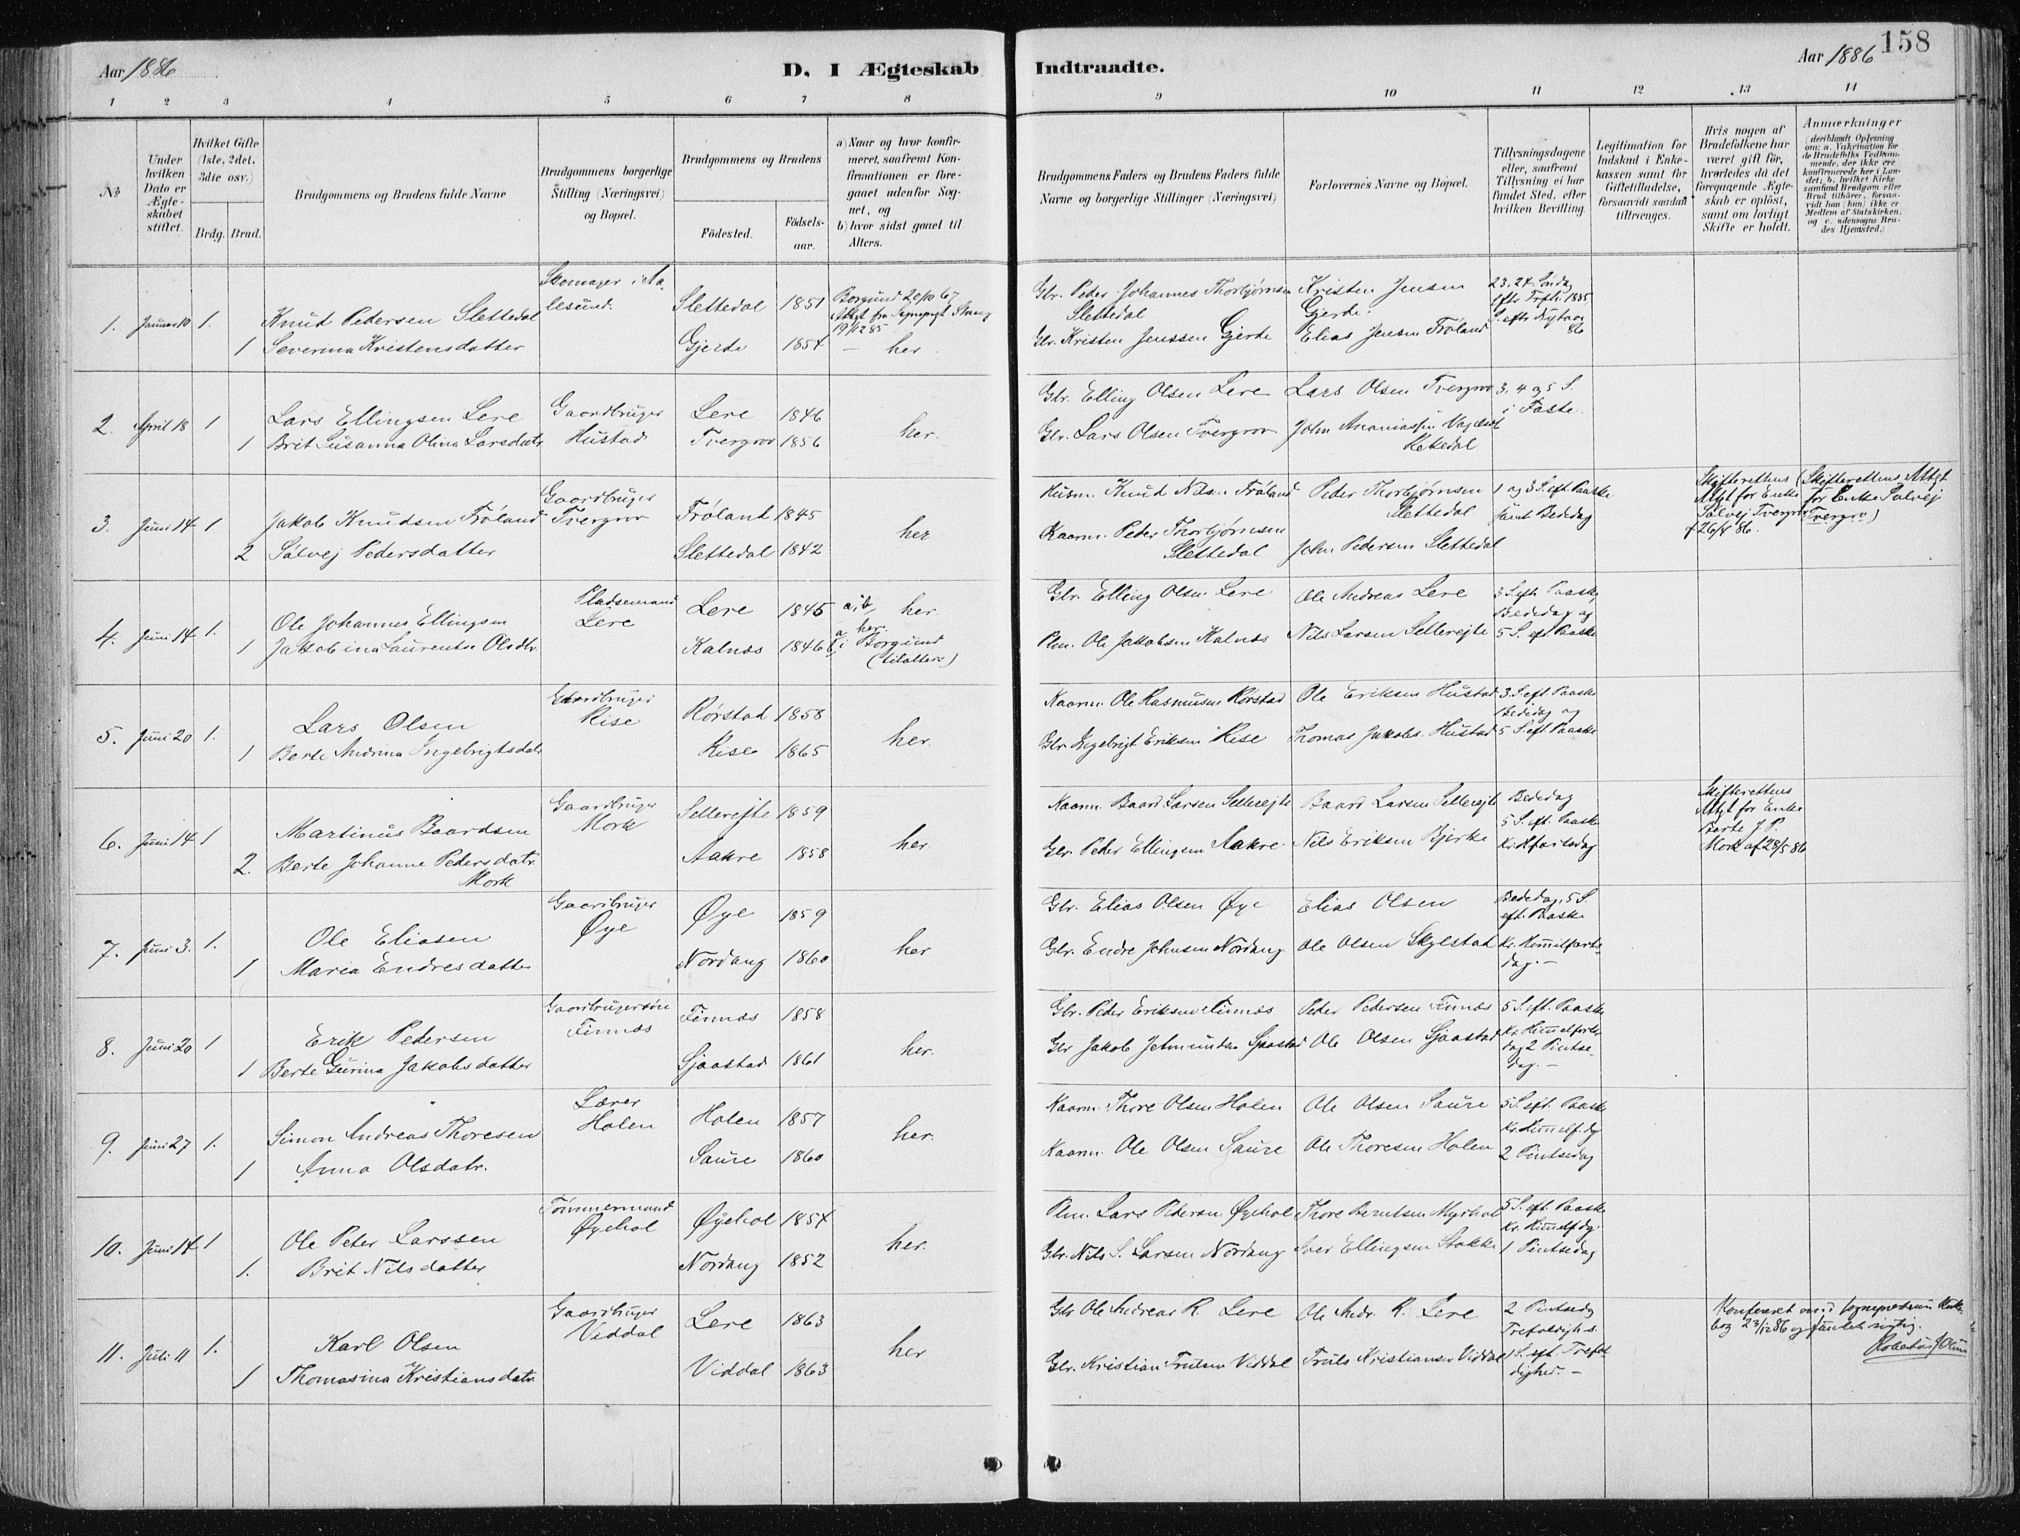 Aar 1886
D. I Ægteskab Indtraadte.
Aar 1886
158
1 2 3 4 5 6 7 8 9 10 11 12 13 14
No
Under hvilken Dato er Ægteskabet stiftet.
Hvilket Gifte (1ste, 2det, 3die osv.)
Brdg. Brud.
Brudgommens og Brudens fulde Navne
Brudgommens borgerlige Stilling (Næringsvei) og Bopæl.
Brudgommens og Brudens
Fødested.
Fødselsaar.
a) Naar og hvor konfirmeret, saafremt Konfirmationen er foregaaet udenfor Sognet, og
b) hvor sidst gaaet til Alters.
Brudgommens Faders og Brudens Faders fulde Navne og borgerlige Stillinger (Næringsvei)
Forlovernes Navne og Bopæl.
Tillysningsdagene eller, saafremt Tillysning ei har fundet Sted, efter hvilken Bevilling.
Legitimation for Indskud i Enkekassen samt for Giftetilladelse, forsaavidt saadan tiltrænges.
Hvis nogen af Brudefolkene har været gift før, hvorledes da det foregaaende Ægteskab er opløst, samt om lovligt Skifte er holdt.
Anmærkninger
(deriblandt Oplysning om: a. Vakcination for de Brudefolks Vedkommende, der ikke ere konfirmerede her i Landet; b. hvilket Kirkesamfund Brudgom eller Brud tilhører, forsaavidt han (hun) ikke er Medlem af Statskirken, og c. udensogns Brudes Hjemsted.)
1. Januar 10 1. Knud Pedersen Slettedal
Skomager i Aalesund.
Slettedal 1851
Borgund 20/10 67
Attgt fra Sognepgt
19/12 85
Glr. Peder Johannes Thorbjørnsen Slettedal
Kristen Jensen Gjerde.
23. 24. Søndag eftr Trfh. 1885
S. eftr Nytaar 86
1 Severina Kristensdatter
Gjerde 1854 — her.
Glr. Kristen Jenssen Gjerde
Elias Jensen Frøland
2. April 18 1 Lars Ellingsen Lere
Gaardbruger Hustad
Lere 1846
her.
Glr. Elling Olsen Lere
Lars Olsen Tvergrov
3. 4 og 5 S. i Faste.
1 Brit Susanna Olina Larsdatr
Tvergrov 1856
Glr. Lars Olsen Tvergrov
John Ananiassen
3. Juni 14 1 Jakob Knudsen Frøland
Gaardbruger Tvergrov
Frøland 1845
her
Husm. Knud Nilsen Frøland
Peder Thorbjørnsen Slettedal
1 og 3 S. eft Paaske samt Bededag
Skifterettens Attgt for Enke Sølvej Tvergrov af 26/4 86.
(Skifterettens Attgt for Enke Sølvej Tvergrov)
2 Sølvej Pedersdatter
Slettedal 1842
Kaarm. Peder Thorbjørnsen Slettedal
John Pedersen Slettedal
4. Juni 14 1. Ole Johannes Ellingsen
Pladsemand Lere
Lere 1845
a, b, her.
Glr. Elling Olsen Lere
Ole Andreas Lere
3 S. eft. Paaske
Bededag og
5 S. eft Paaske
1 Jakobina Laurentse Olsdtr.
Kalnæs 1846
a, her.
b, i Borgund
(tilalters)
Plm. Ole Jakobsen Kalnæs
Nils Larsen Sellerejte
5. Juni 20 1. Lars Olsen
Gaardbruger Rise
Rørstad 1858
her.
Kaarm. Ole Rasmusen Rørstad
Ole Eriksen Hustad
3. S. eft Paaske
Bededag og
5 S. eft Paaske
1 Berte Andrina Ingebrigtsdatr
Rise 1865
Glr Ingebrigt Eriksen Rise
Thomas Jakobs. Hustad
6. Juni 14 1 Martinus Baardsen
Gaardbruger Mork
Sellerejte 1859
her.
Kaarm. Baard Larsen Sellerejte
Baard Larsen Sellerejte
Bededag
5 S. eft. Paaske
Kr. Hfartsdag
Skifterettens Attgt for Enke Berte J. P. Mork af 28/5 86
2. Berte Johanne Pedersdatr. Mork
Aakre 1858
Glr. Peder Ellingsen Aakre
Nils Eriksen Bjerke
7. Juni 3. 1. Ole Eliasen
Gaardbruger Øye
Øye 1859
her
Glr. Elias Olsen Øye
Elias Olsen
Bededag, 5 S. eft. Paaske
Kr. Himmelfartsdag. —
1 Maria Endresdatter
Nordang 1860
Glr. Endre Johnsen Nordang
Ole Olsen Skylstad
8. Juni 20 1 Erik Pedersen
Gaardbrugersøn Finnæs
Finnæs 1858
her.
Gbr. Peder Eriksen Finnæs
Peder Pedersen Finnæs
5 S. eft. Paaske
Kr. Himmelfartsdag 2 Pintsedag. —
1 Berte Gurina Jakobsdatter
Sjaastad 1861
Glr Jakob Jetmundsen Sjaastad
Ole Olsen Sjaastad
9. Juni 27 1. Simon Andreas Thoresen
Lærer Holen
Holen 1857
her.
Kaarm. Thore Olsen Holen
Ole Olsen Saure
5 S. eft. Paaske
Kr. Himmelf. dg
2 Pintsedag
1 Anna Olsdatr.
Saure 1860
Kaarm. Ole Olsen Saure
Ole Thoresen Holen
10. Juni 14 1 Ole Peter Larssen
Tømmermand Øyehol
Øyehol 1854
her.
Plm. Lars Pedersen Øyehol
Thore Berntsen Myrhol
5 S. eft Paaske
Kr. Himmelf dg.
1 Pintsedag
1. Brit Nilsdatter
Nordang 1852
Glr. Nils S. Larsen Nordang
Iver Ellingsen Stokke
11. Juli 11 1. Karl Olsen
Gaardbruger Viddal
Lere 1863
her
Glr Ole Andreas R. Lere
Ole Andr. R. Lere
2 Pintsedag
Trefoldigh. s.
1 S. eft. Trefoldighed. —
Konfereret med Sogneprestens Kirkebog 23/12 86 og fundet rigtig.
1 Thomasina Kristiansdatr.
Viddal 1863
Glr. Kristian Trulsen Viddal
Truls Kristiansen Viddal